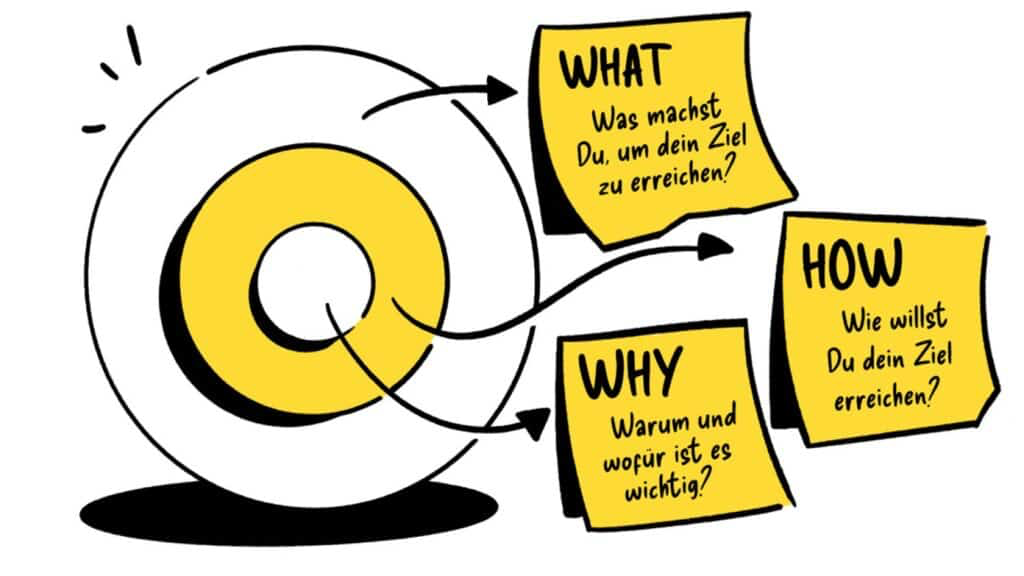 WHAT
Was machst
Du, um dein Ziel
zu erreichen?
HOW
Wie willst
Du dein Ziel
erreichen?
WHY
Warum und
wofür ist es
wichtig?